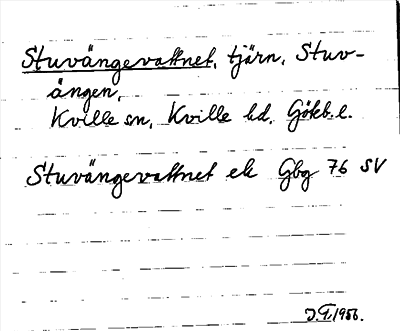 Stuvängevattnet, tjärn, Stuv-
ängen,
Kville sn, Kville hd, Göteb. l.
Stuvängevattnet ek Gbg 76 SV
J.G. 1956.